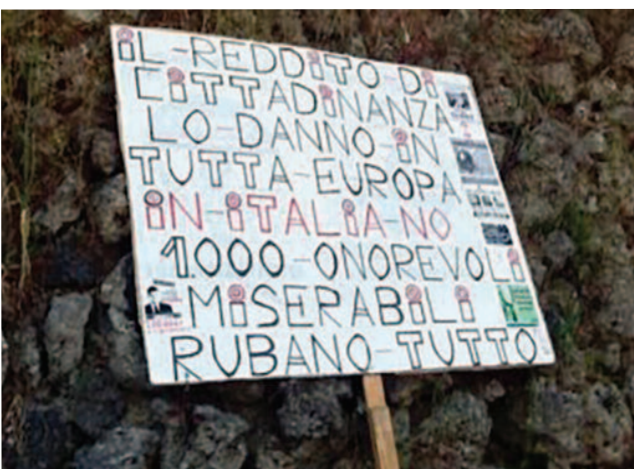 iL-REDDiTO-Di
CiTTADiNANZA
LO-DANNO-iN
TUTTA-EUROPA
iN-iTALiA-NO
1.000-ONOREVOLi
MiSERABiLi
RUBANO-TUTTO